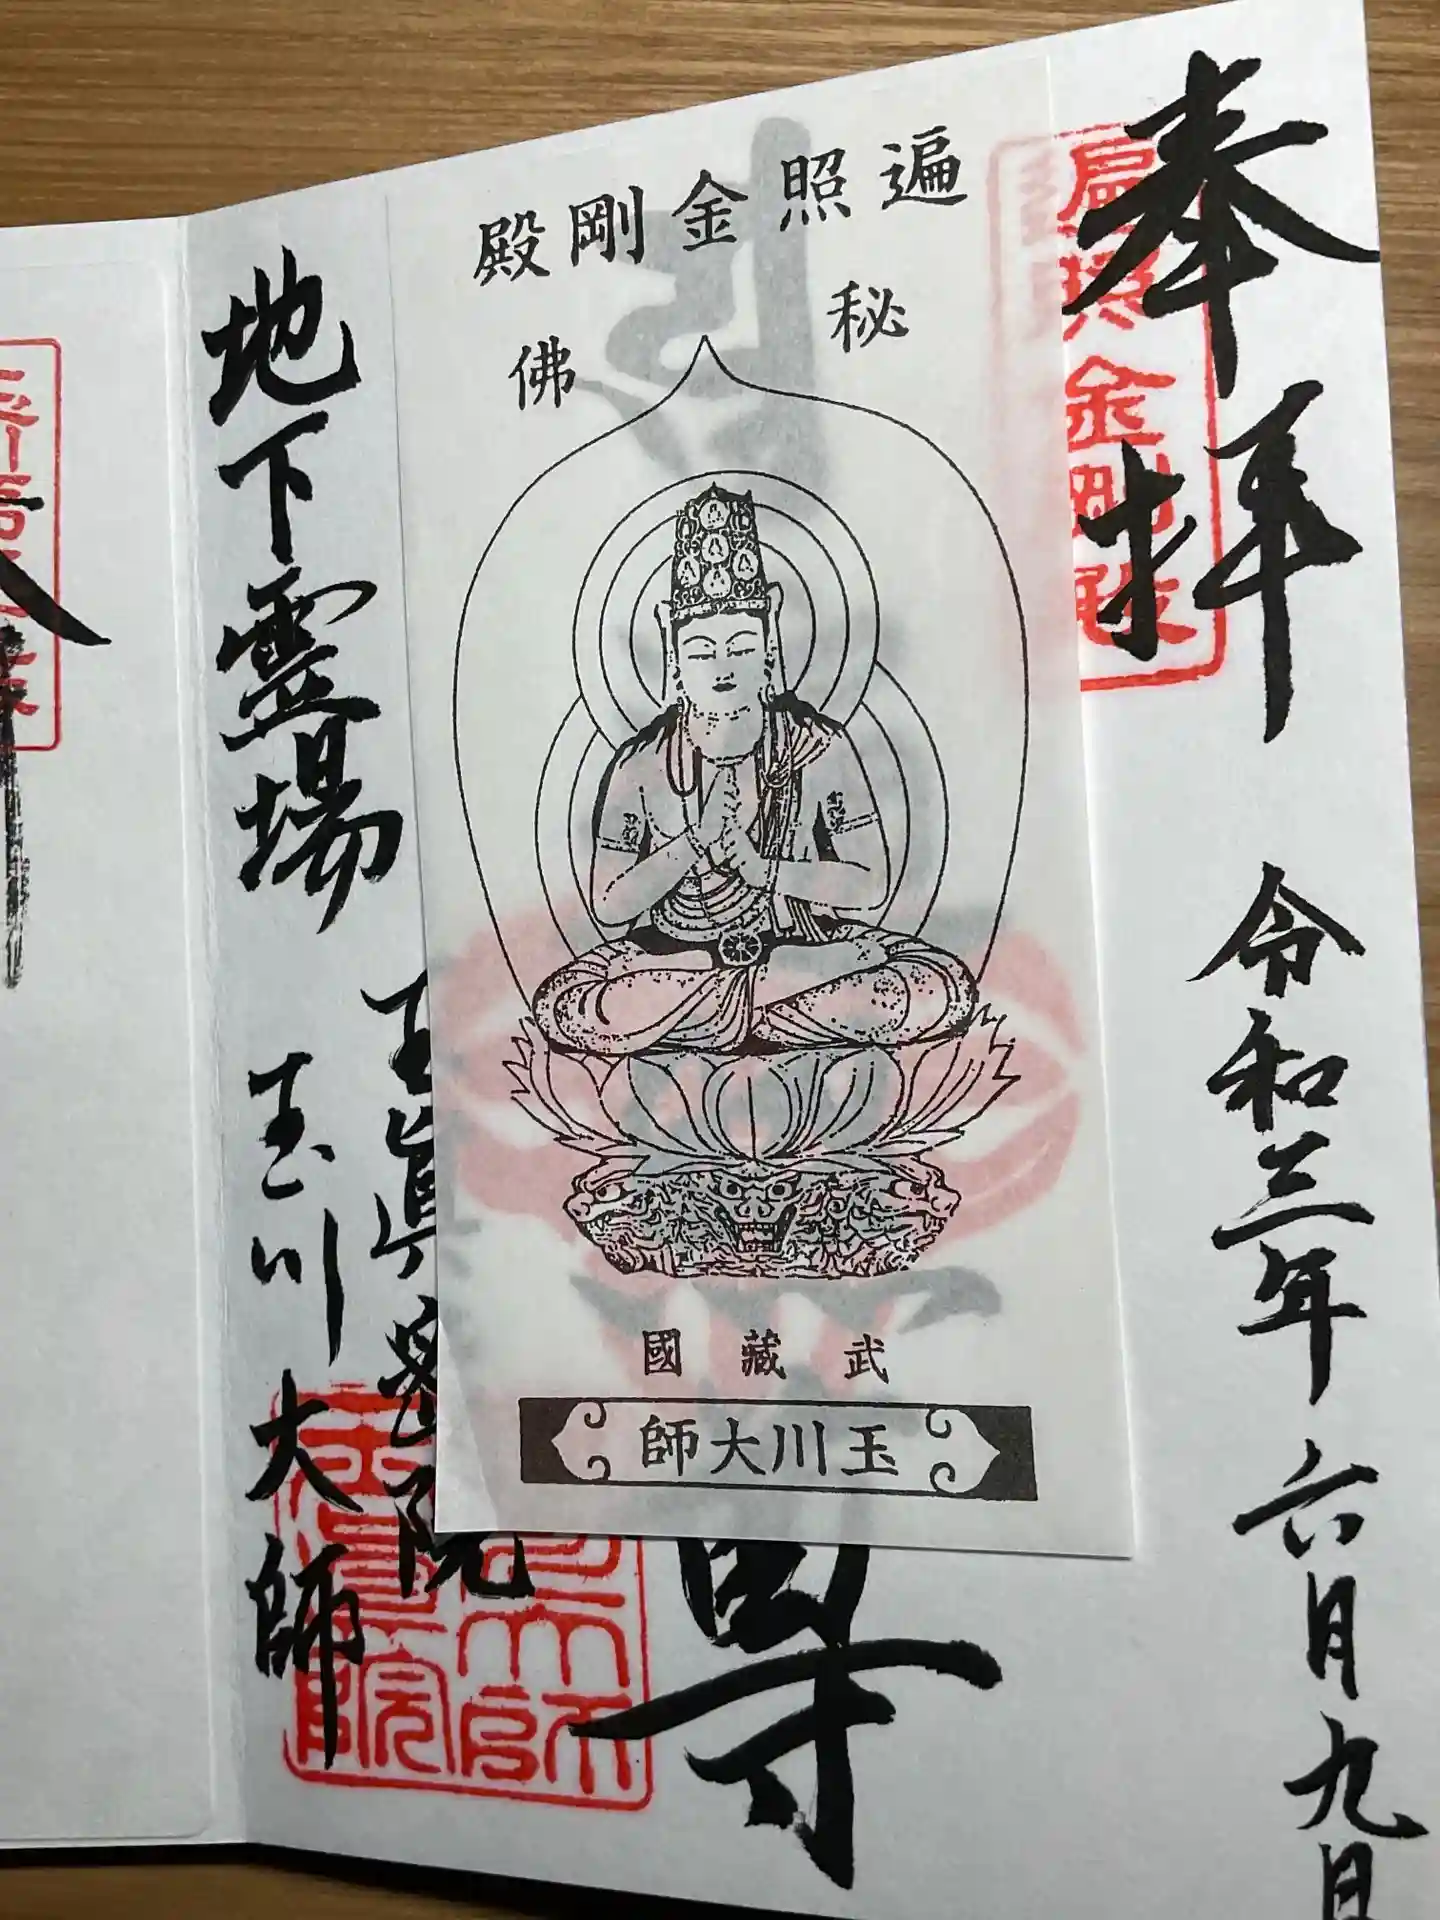 奉拝
令和三年六月九日
遍照金剛殿
遍照金剛殿
秘佛
武藏國
玉川大師
尊
地下霊場
玉川大師
玉眞密院
玉眞院